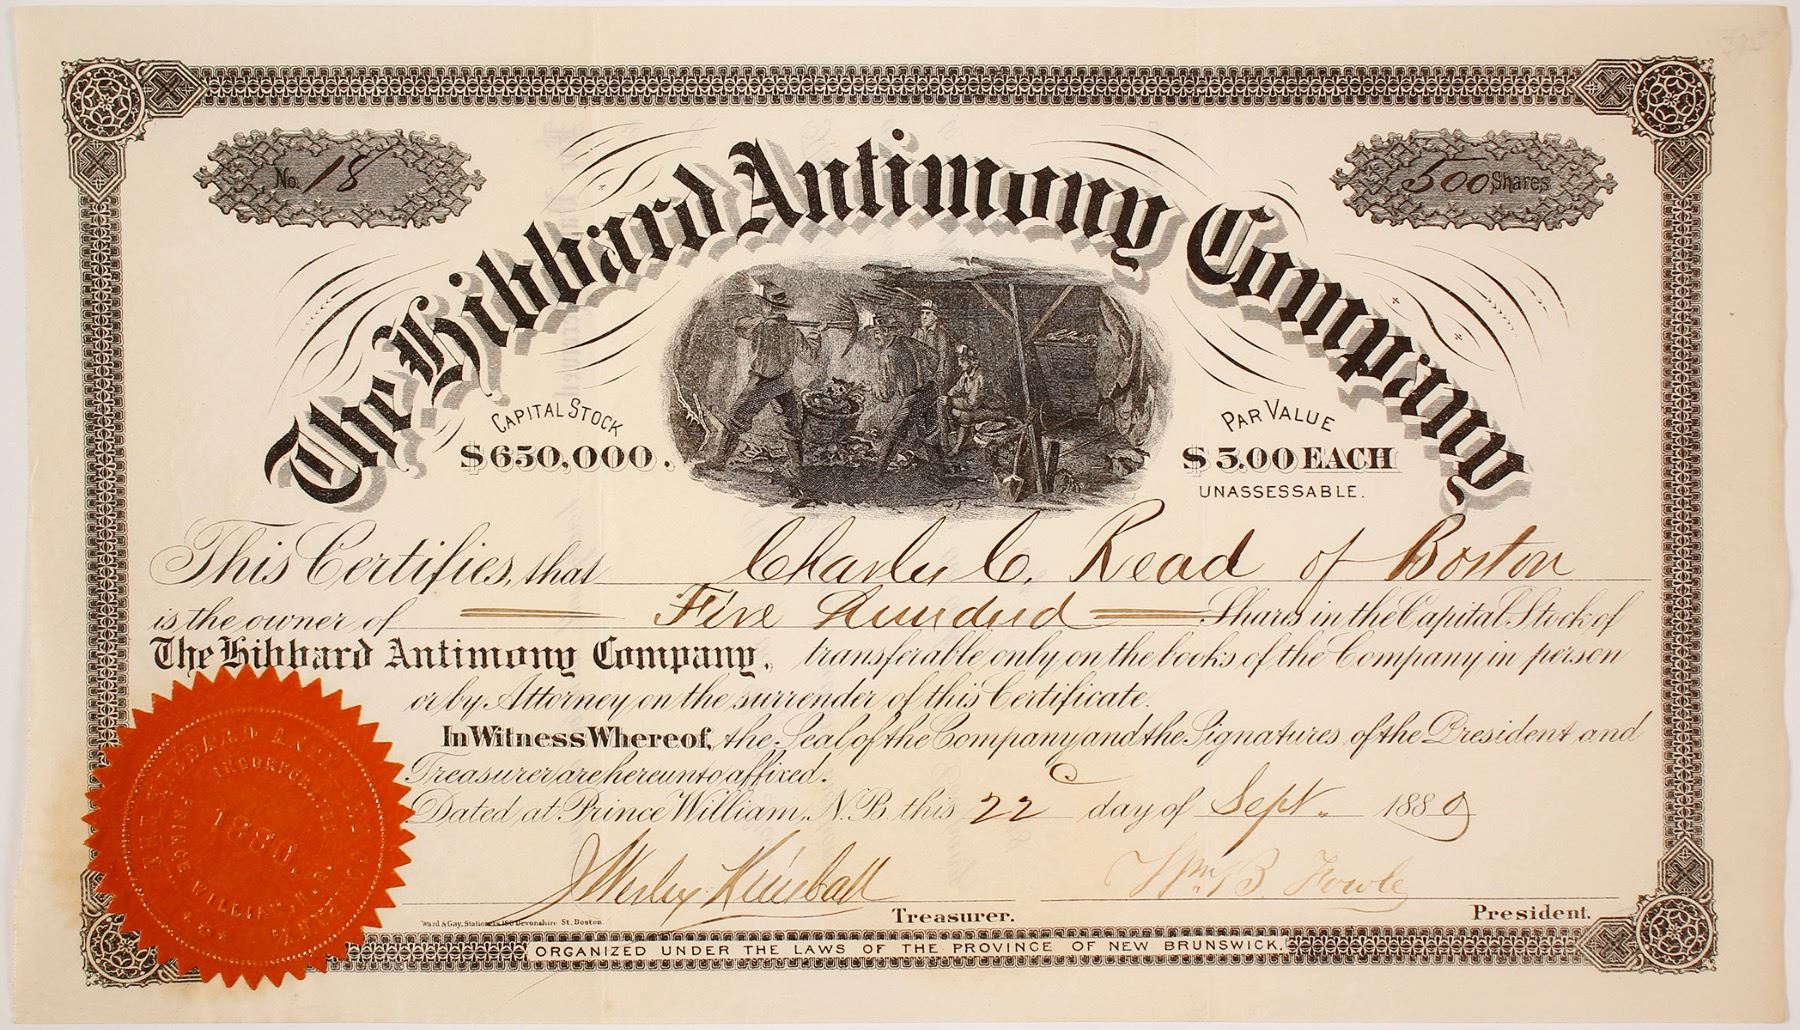 No. 18
500 Shares
The Hibbard Antimony Company
CAPITAL STOCK
$650,000.
PAR VALUE
$5.00 EACH
UNASSESSABLE.
This Certifies, that Charles C. Read of Boston
is the owner of Five Hundred Shares in the Capital Stock of
The Hibbard Antimony Company, transferable only on the books of the Company in person
or by Attorney on the surrender of this Certificate.
In Witness Whereof, the Seal of the Company and the Signatures of the President and
Treasurer are hereunto affixed.
Dated at Prince William, N.B. this 22 day of Sept. 1880
J Wesley Kimball Treasurer.
Wm B. Fowle President.
Ward & Gay, Stationers 180 Devonshire St. Boston.
ORGANIZED UNDER THE LAWS OF THE PROVINCE OF NEW BRUNSWICK.
THE HIBBARD ANTIMONY COMPANY
INCORPORATED
1880.
PRINCE WILLIAM, N.B.